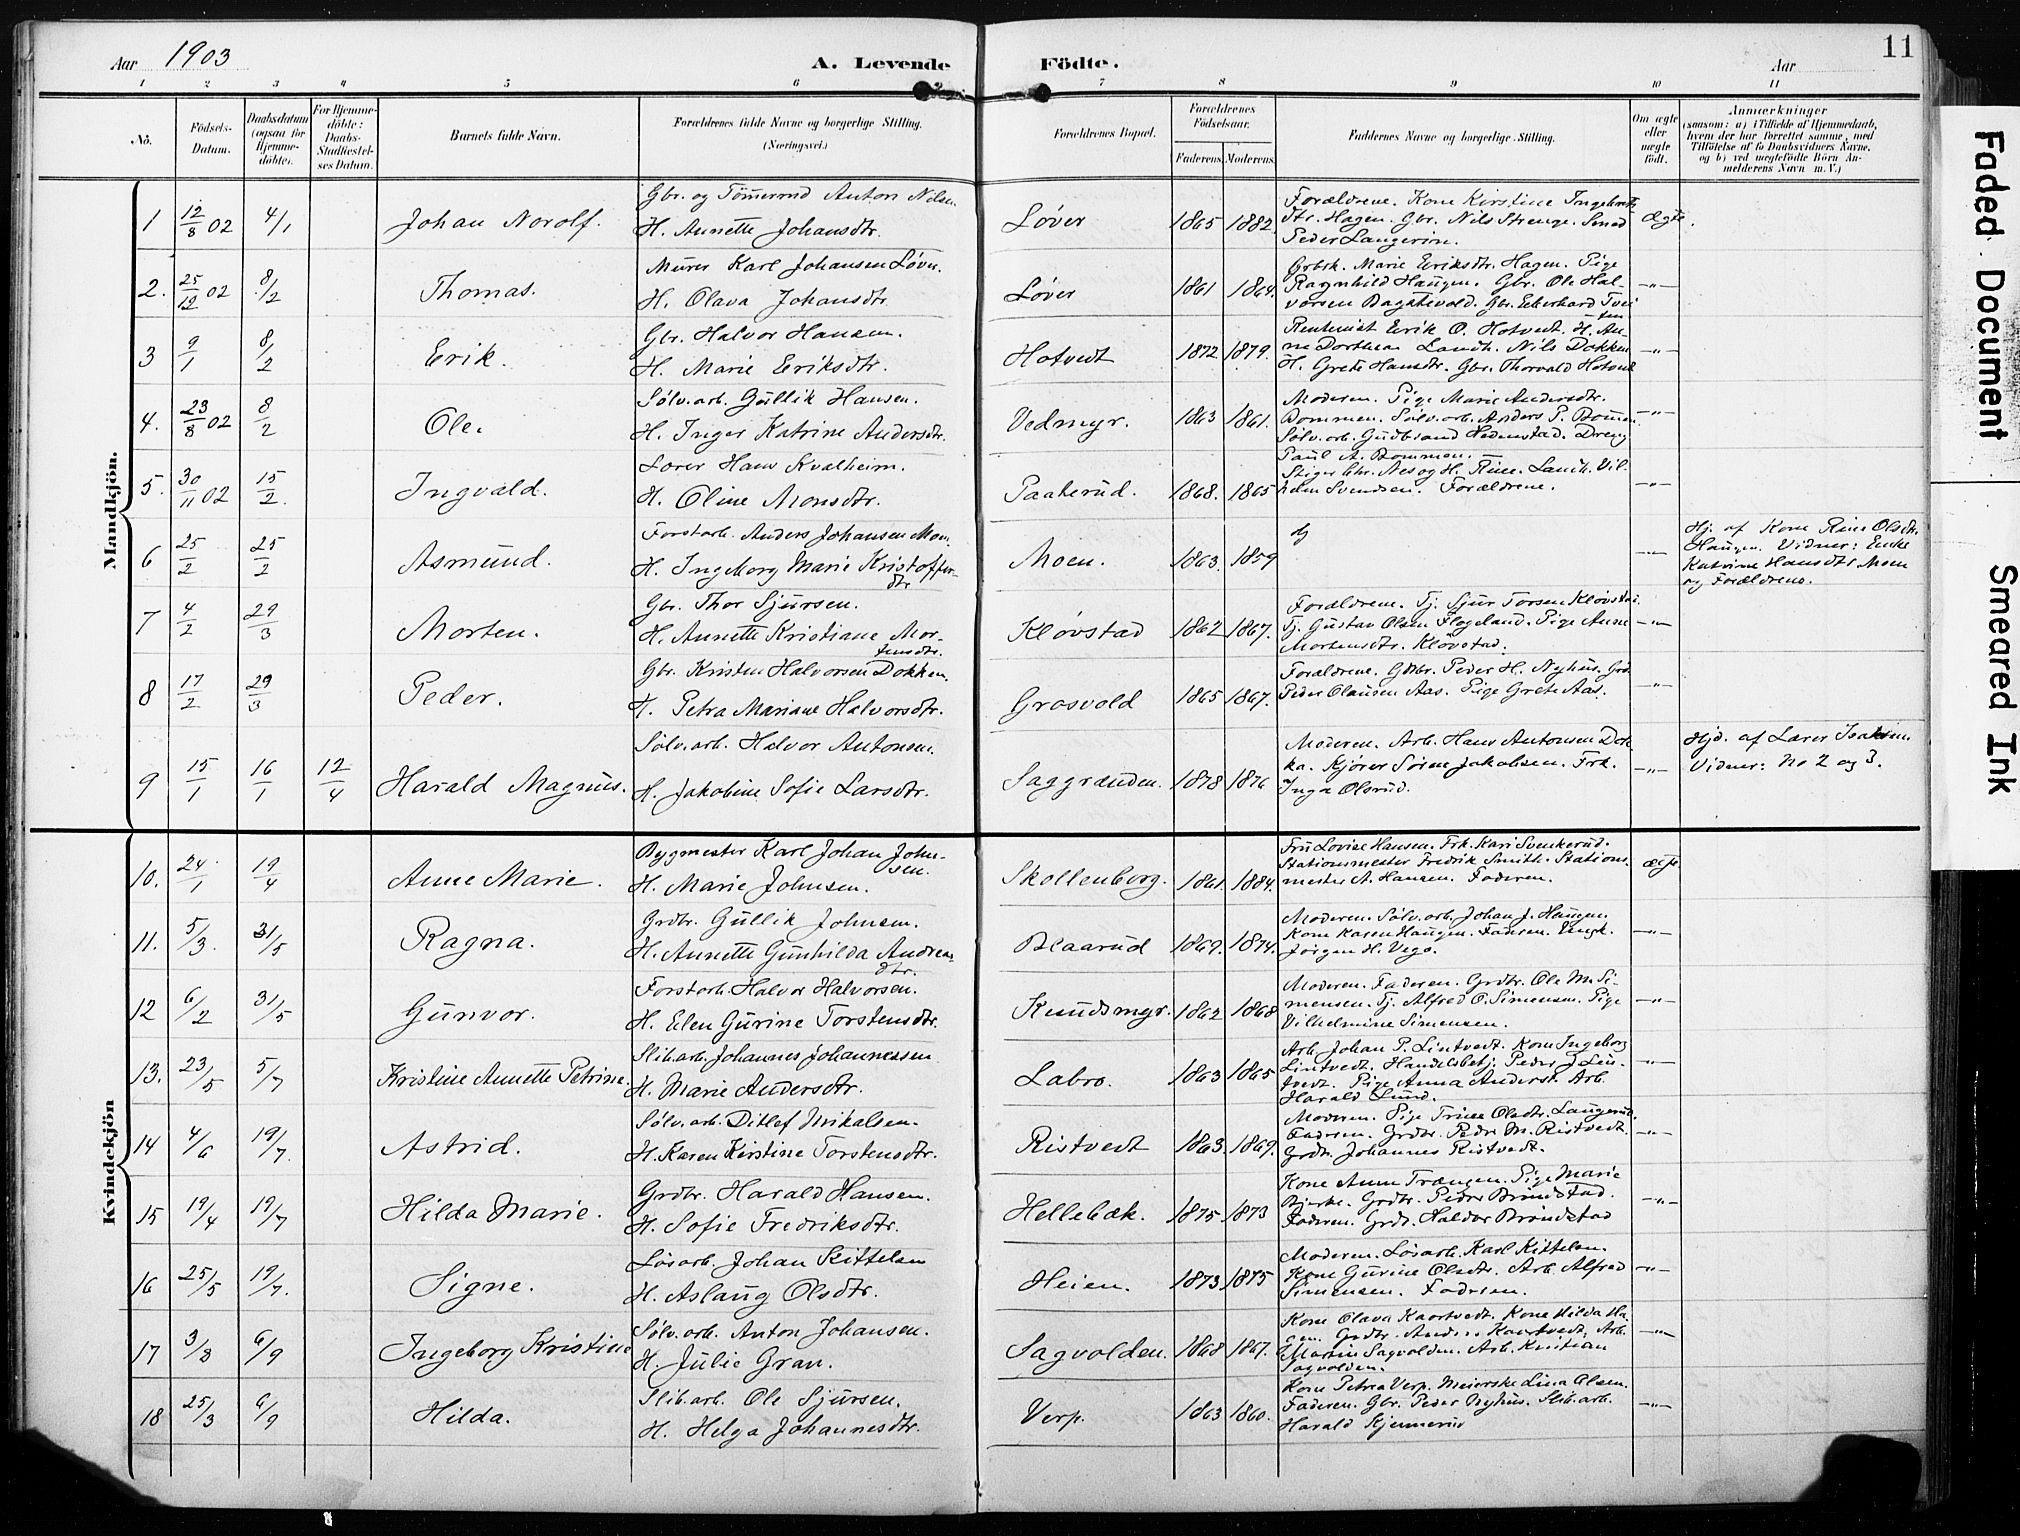 Aar 1903
A. Levende
Födte.
Aar
11
1 2 3 4 5 6 7 8 9 10 11
No.
Födsels-
Datum.
Daabsdatum
(ogsaa for
Hjemme-
döbte).
For Hjemme-
döbte:
Daabs-
Stadfæstel-
ses Datum.
Barnets fulde Navn.
Forældrenes fulde Navne og borgerlige Stilling.
(Næringsvei.)
Forældrenes Bopæl.
Forældrenes
Födselsaar.
Faderens. Moderens.
Faddernes Navne og borgerlige Stilling.
Om ægte
eller
uægte
födt.
Anmærkninger
(saasom: a) i Tilfælde af Hjemmedaab,
hvem der har forrettet samme, med
Tilföielse af to Daabsvidners Navne,
og b) ved uægtefödte Börn An-
melderens Navn m. V.)
Mandkjön.
1 12/8 02 4/1 Johan Norolf.
Gbr. og Tömmermd Anton Nilsen
H. Annette Johansdtr.
Løver 1865 1882.
Forældrene. Kone Kirstine Ingebrets-
dtr. Hagen. Gbr. Nils Strenge. Smed
Peder Langerin.
Ægte.
2. 25/12 02 8/2 Thomas.
Murer Karl Johansen Løver.
H. Olava Johansdtr.
Løver 1861 1864.
Grbrk. Marie Eriksdtr. Hagen. Pige
Ragnhild Haugen. Gbr. Ole Hal-
vorsen Bagstevold. Gbr. Ekerhard Tvei
ten
-"-
3 9/1 8/2 Erik.
Gbr. Halvor Hansen.
H. Marie Eriksdtr.
Hotvedt 1872 1879.
Rentenist Erik O. Hotvedt. H. An-
ne Dorthea Landh. Nils Dokken
H. Grete Hansdtr. Gbr. Thorvald Hotvedt
-"-
4. 23/8 02 8/2 Ole.
Sølv.arb. Gullik Hansen.
H. Inger Katrine Andersdtr.
Vedmyr. 1863 1861.
Moderen. Pige Marie Andersdtr.
Bommen. Sølv.arb. Anders P. Bommen.
Sølv.arb. Gudbrand Hedenstad. Dreng
Paul A. Bommen.
-"-
5. 30/11 02 15/2 Ingvald.
Lærer Hans Kvalheim.
H. Oline Monsdtr.
Paaterud. 1868. 1865
Stiger Chr. Nes og H. Rine. Landh. Vil-
helm Svendsen. Forældrene.
-"-
6 25/2 25/2 Asmund.
Forstarb. Anders Johansen Moen.
H. Ingeborg Marie Kristoffer-
dtr
Moen. 1863. 1859
-"-
Hj. af Kone Rine Olsdtr.
Haugen. Vidner: Enke
Katrine Hansdtr Moen
og Forældrene.
7 4/2 29/3 Morten.
Gbr. Thor Sjursen.
H. Annette Kristiane Mor-
tensdtr.
Kløvstad 1862 1867.
Forældrene. Tj. Sjur Torsen Kløvstad.
Tj. Gustav Olsen Flogeland. Pige Anne
Mortensdtr. Kløvstad.
-"-
8 17/2 29/3 Peder.
Gbr. Kristen Halvorsen Dokken.
H. Petra Mariane Halvorsdtr.
Grosvold 1865 1867.
Forældrene. Gdbr. Peder H. Nyhus. Grd.
Peder Olausen Aas. Pige Grete Aas.
-"-
9 15/1 16/1 12/4 Harald Magnus.
Sølv.arb. Halvor Antonsen.
H. Jakobine Sofie Larsdtr.
Saggrenden. 1878 1876
Moderen. Arb. Hans Antonsen Dok-
ka. Kjører Sørene Jakobsen. Frk.
Inga Olsrud.
-"-
Hjd. af Lærer Isaksen.
Vidner: No 2 og 3.
Kvindekjön
10. 24/1 19/4 Anne Marie.
Bygmester Karl Johan John-
sen.
H. Marie Johnsen.
Skollenborg. 1861. 1884.
Fru Lovise Hansen. Frk. Kari Svenkerud.
Stationsmester Fredrik Smith. Stations-
mester A. Hansen. Faderen.
ægte
11. 5/3. 31/5 Ragna.
Grdbr. Gullik Johnsen.
H. Annette Gunhilda Andreas
dtr.
Blaarud 1869. 1874.
Moderen. Sølv.arb. Johan J. Haugen.
Kone Karen Haugen. Faderen. Ungk.
Jørgen H. Vego.
-"-
12 6/2 31/5 Gunvor.
Forstarb. Halvor Halvorsen.
H. Elen Gurine Torstensdtr.
Knudsmyr. 1862 1868
Moderen. Faderen. Grdbr. Ole M. Si-
mensen. Tj. Alfred O. Simensen. Pige
Vilhelmine Simensen.
-"-
13. 23/5 5/7 Kristine Annette Petrine.
Slib.arb. Johannes Johannessen
H. Marie Andersdtr.
Labro. 1863 1865
Arb. Johan P. Lintvedt. Kone Ingeborg
Lintvedt. Handelsbetj. Peder J. Lin-
tvedt. Pige Anna Anderst. Arb.
Harald Lund.
-"-
14 4/6 19/7. Astrid.
Sølv.arb. Ditlef Mikalsen.
H. Karen Kirstine Torstensdtr.
Ristvedt 1863. 1869.
Moderen. Pige Trine Olsdtr. Langerud.
Faderen. Grdbr. Peder M. Ristvedt.
Grdr. Johannes Ristvedt.
-"-
15 19/4 19/7 Hilda Marie.
Grdbr. Harald Hansen.
H. Sofie Fredriksdtr.
Hellebæk. 1875 1873
Kone Anne Trængen. Pige Marie
Bjerke. Grdbr. Peder Brøndstad.
Faderen. Grdr. Haldor Brøndstad
-"-
16 25/5 19/7. Signe.
Løsarb. Johan Kittelsen
H. Aslaug Olsdtr.
Heien. 1873 1875
Moderen. Løsarb. Karl Kittelsen.
Kone Gurine Olsdtr. Arb. Alfred
Simensen. Faderen.
-"-
17 3/8 6/9 Ingeborg Kristine
Sølv.arb. Anton Johansen.
H. Julie Gran.
Sagvolden. 1868 1867.
Kone Olava Kaartvedt. Kone Hilda Ha-
gen. Grdbr. Anders Kaartvedt. Arb.
Martin Sagvolden. Arb. Kristian
Sagvolden.
-"-
18 25/3 6/9 Hilda.
Slib.arb. Ole Sjursen.
H. Helga Johannesdtr.
Verp. 1863 1860.
Kone Petrea Verp. Meierske Lina Olsen.
Faderen. Gbr. Peder Nyhus. Slib.arb.
Harald Kjennerud
-"-
Faded Document
Smeared Ink